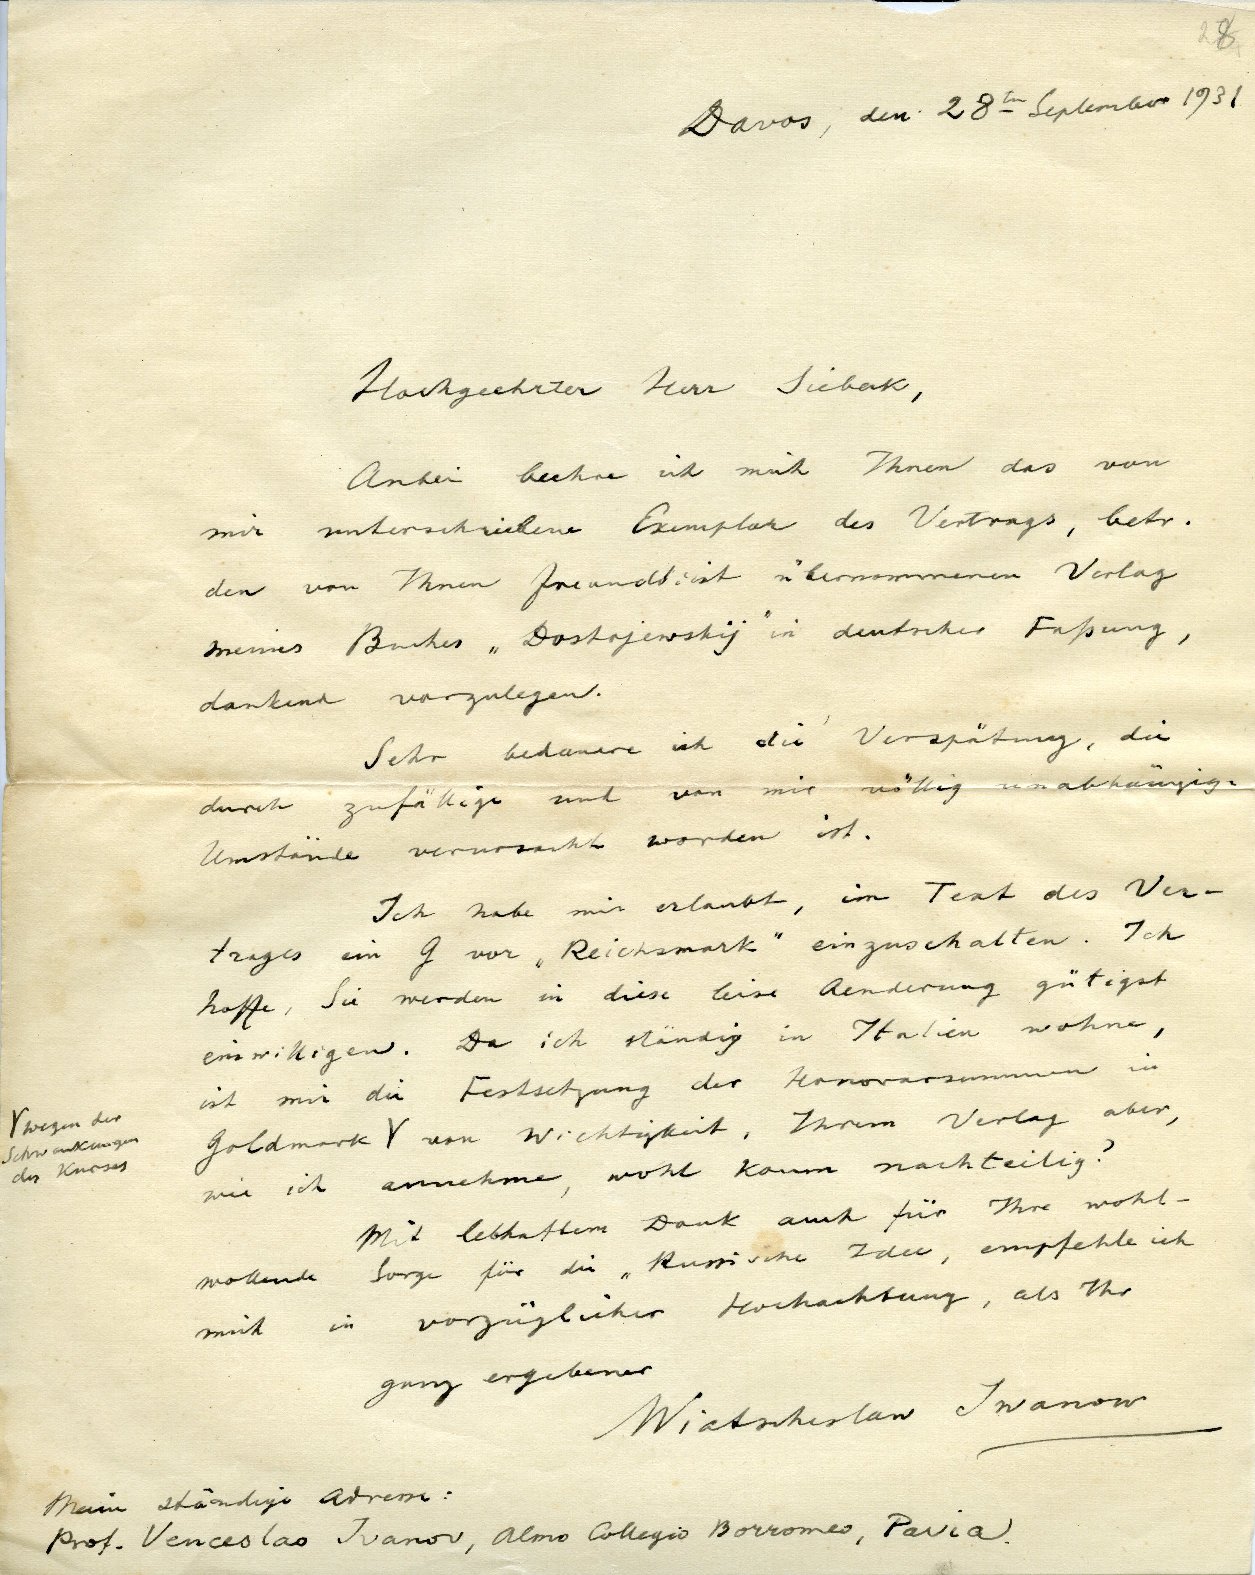 28
Davos, den 28ten September 1931
Hochgeehrter Herr Siebek,
Anbei beehre ich mich Ihnen das von
mir unterschriebene Exemplar des Vertrags, betr.
den von Ihnen freundlichst übernommenen Verlag
meines Buches „Dostojewskij" in deutscher Faßung,
dankend vorzulegen.
Sehr bedauere ich die Verspätung, die
durch zufällige und von mir völlig unabhängige
Umstände verursacht worden ist.
Ich habe mir erlaubt, im Text des Ver-
trages ein G vor „Reichsmark" einzuschalten. Ich
hoffe, Sie werden in diese leise Aenderung gütigst
einwilligen. Da ich ständig in Italien wohne,
ist mir die Festsetzung der Honorarsummen in
Goldmark Y von Wichtigkeit, Ihrem Verlag aber,
Y wegen der
Schwankungen
des Kurses
wie ich annehme, wohl kaum nachteilig?
Mit lebhaftem Dank auch für Ihre wohl-
wollende Sorge für die „Russische Idee, empfehle ich
mich in vorzüglicher Hochachtung, als Ihr
ganz ergebener
Wiatscheslaw Iwanow
Mein ständige Adresse:
Prof. Venceslao Ivanov, Almo Collegio Borromeo, Pavia.